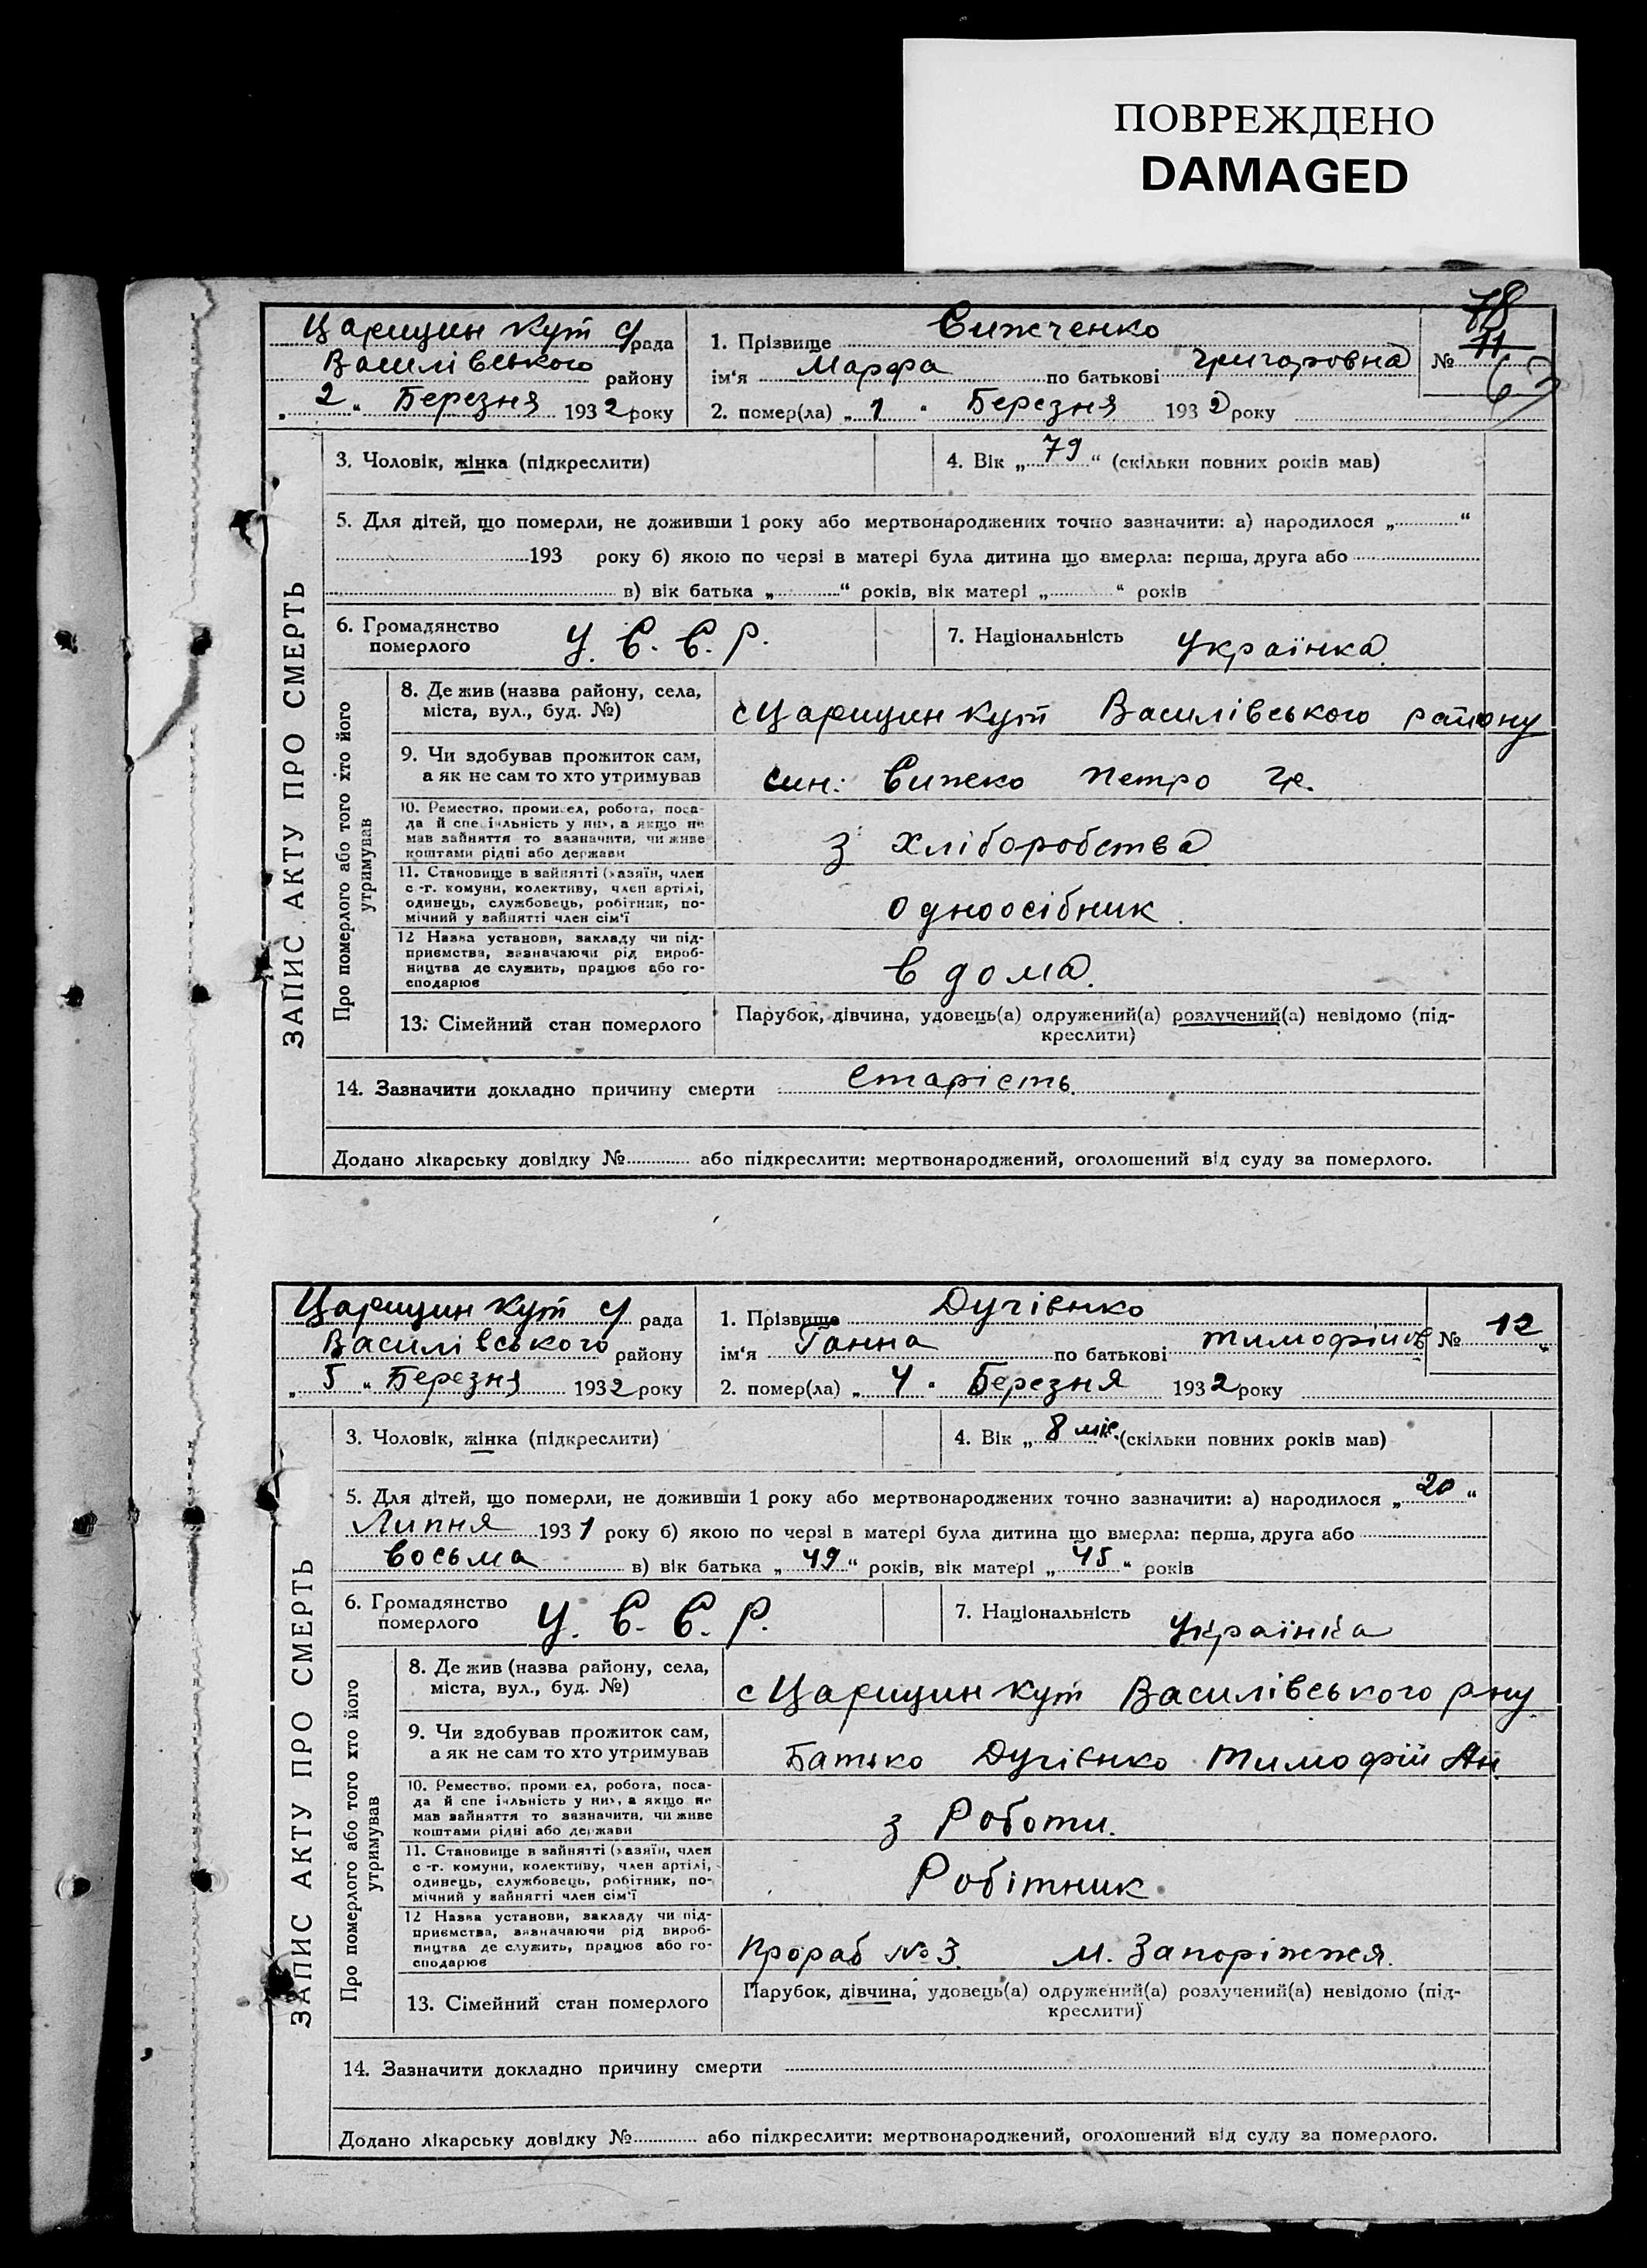 ПОВРЕЖДЕНО
DAMAGED
Царицин Кут с/рада
Василівського району
„ 2 “ Березня 1932 року
1. Прізвище Сижченко
ім‘я Марфа по батькові Григоровна
2. помер(ла) „ 1 “ Березня 1932 року
№ 11
78
3. Чоловік, жінка (підкреслити)
4. Вік „ 79 “ (скільки повних років мав)
5. Для дітей, що померли, не доживши 1 року або мертвонароджених точно зазначити: а) народилося „ “
193 року б) якою по черзі в матері була дитина що вмерла: перша, друга або
в) вік батька „ “ років, вік матері „ “ років
6. Громадянство
померлого
У. С. С. Р.
7. Національність Українка
ЗАПИС АКТУ ПРО СМЕРТЬ
Про померлого або того хто його
утримував
8. Де жив (назва району, села,
міста, вул., буд. №)
с Царицин Кут Василівського району
9. Чи здобував прожиток сам,
а як не сам то хто утримував
син: Сижко Петро Гр.
10. Ремество, промисел, робота, поса-
да й спеціяльність у них, а якщо не
мав зайняття то зазначити, чи живе
коштами рідні або держави
з хліборобства
11. Становище в зайнятті (хазяїн, член
с.-г. комуни, колективу, член артілі,
одинець, службовець, робітник, по-
мічний у зайнятті член сім‘ї
одноосібник
12 Назва установи, закладу чи під-
приємства, зазначаючи рід вироб-
ництва де служить, працює або го-
сподарює
в дома.
13. Сімейний стан померлого
Парубок, дівчина, удовець(а) одружений(а) розлучений(а) невідомо (під-
креслити)
14. Зазначити докладно причину смерти Старість.
Додано лікарську довідку № або підкреслити: мертвонароджений, оголошений від суду за померлого.
Царицин Кут с/рада
Василівського району
„ 5 “ Березня 1932 року
1. Прізвище Дучієнко
ім‘я Ганна по батькові Тимофіїв
2. помер(ла) „ 4 “ Березня 1932 року
№ 12
3. Чоловік, жінка (підкреслити)
4. Вік „ 8 міс. (скільки повних років мав)
5. Для дітей, що померли, не доживши 1 року або мертвонароджених точно зазначити: а) народилося „ 20 “
Липня 1931 року б) якою по черзі в матері була дитина що вмерла: перша, друга або
восьма в) вік батька „ 49 “ років, вік матері „ 45 “ років
6. Громадянство
померлого
У. С. С. Р.
7. Національність Українка
ЗАПИС АКТУ ПРО СМЕРТЬ
Про померлого або того хто його
утримував
8. Де жив (назва району, села,
міста, вул., буд. №)
с Царицин Кут Василівського р-ну
9. Чи здобував прожиток сам,
а як не сам то хто утримував
Батько Дучієнко Тимофій Ан.
10. Ремество, промисел, робота, поса-
да й спеціяльність у них, а якщо не
мав зайняття то зазначити, чи живе
коштами рідні або держави
з Роботи.
11. Становище в зайнятті (хазяїн, член
с.-г. комуни, колективу, член артілі,
одинець, службовець, робітник, по-
мічний у зайнятті член сім‘ї
Робітник
12 Назва установи, закладу чи під-
приємства, зазначаючи рід вироб-
ництва де служить, працює або го-
сподарює
Прораб № 3. м. Запоріжжя.
13. Сімейний стан померлого
Парубок, дівчина, удовець(а) одружений(а) розлучений(а) невідомо (під-
креслити)
14. Зазначити докладно причину смерти
Додано лікарську довідку № або підкреслити: мертвонароджений, оголошений від суду за померлого.